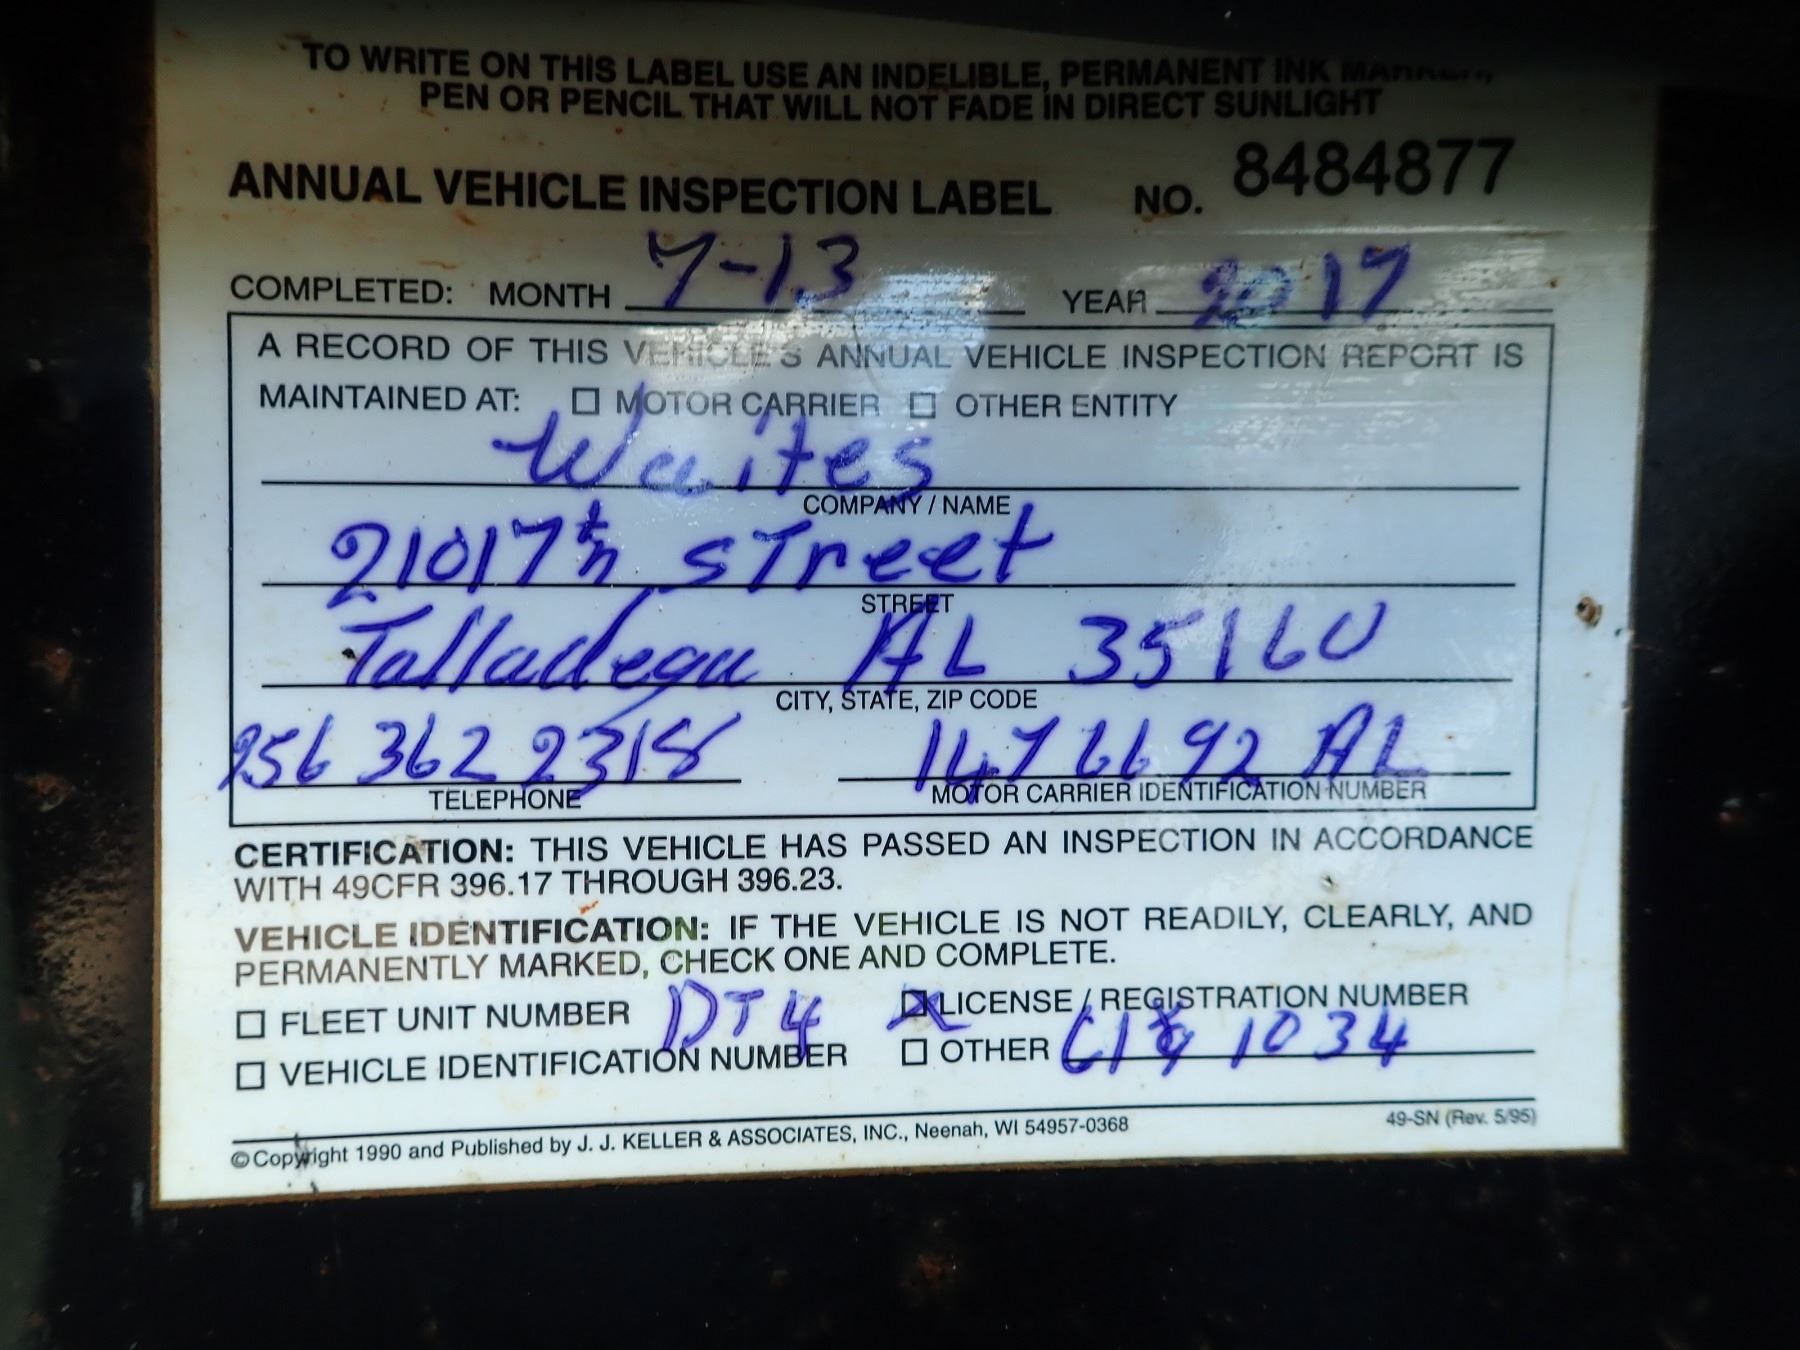 TO WRITE ON THIS LABEL USE AN INDELIBLE, PERMANENT INK MARKER,
PEN OR PENCIL THAT WILL NOT FADE IN DIRECT SUNLIGHT
ANNUAL VEHICLE INSPECTION LABEL NO. 8484877
COMPLETED: MONTH 7-13 YEAR 2017
A RECORD OF THIS VEHICLE'S ANNUAL VEHICLE INSPECTION REPORT IS
MAINTAINED AT: ☐ MOTOR CARRIER ☐ OTHER ENTITY
Waites
COMPANY / NAME
21017th STreet
STREET
Talladega AL 35160
CITY, STATE, ZIP CODE
256 362 2318 1476692 AL
TELEPHONE MOTOR CARRIER IDENTIFICATION NUMBER
CERTIFICATION: THIS VEHICLE HAS PASSED AN INSPECTION IN ACCORDANCE
WITH 49CFR 396.17 THROUGH 396.23.
VEHICLE IDENTIFICATION: IF THE VEHICLE IS NOT READILY, CLEARLY, AND
PERMANENTLY MARKED, CHECK ONE AND COMPLETE.
☐ FLEET UNIT NUMBER DT4 ☒ LICENSE / REGISTRATION NUMBER
☐ VEHICLE IDENTIFICATION NUMBER ☐ OTHER 1034
© Copyright 1990 and Published by J. J. KELLER & ASSOCIATES, INC., Neenah, WI 54957-0368 49-SN (Rev. 5/95)